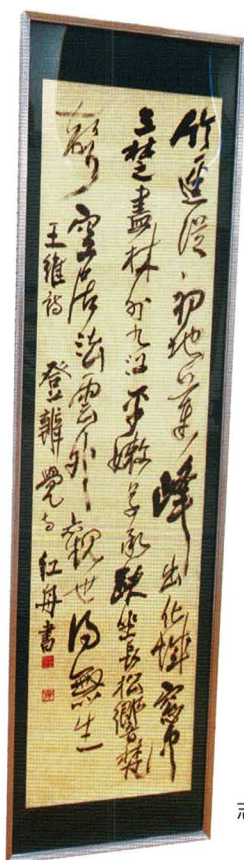 竹逕從初地蓮峰出化城窗中
三楚盡林外九江平嫩草承趺坐長松響梵
聲空居法雲外觀世得無生
王維詩 登辨覺寺 紅舟書
志